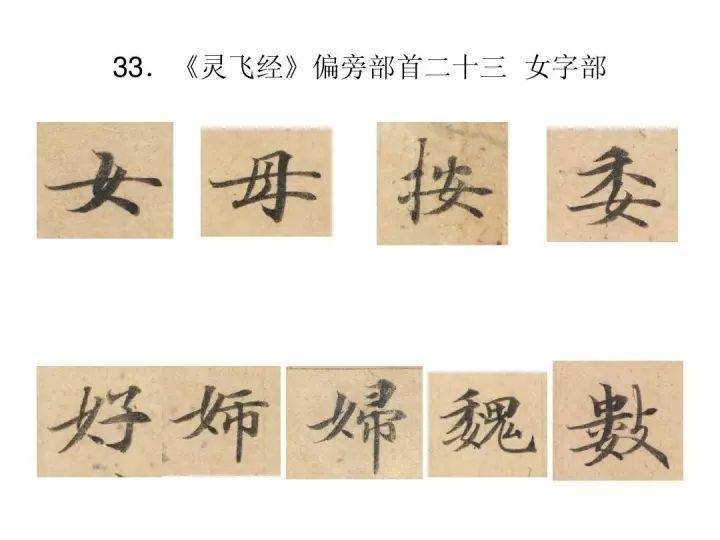 33. 《灵飞经》偏旁部首二十三 女字部
女 母 按 委
好 姉 婦 魏 數